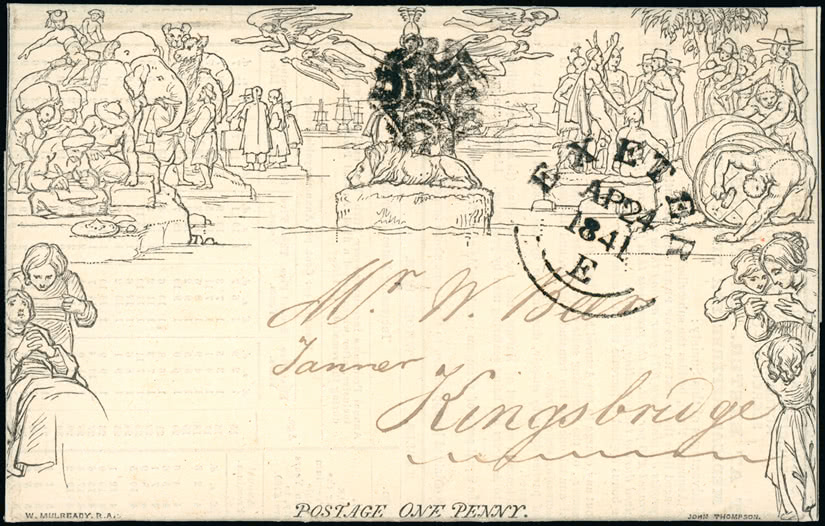 EXETER
AP24
1841
E
Mr. W.
Tanner
Kingsbridge
POSTAGE ONE PENNY.
W. MULREADY. R.A.
JOHN THOMPSON.